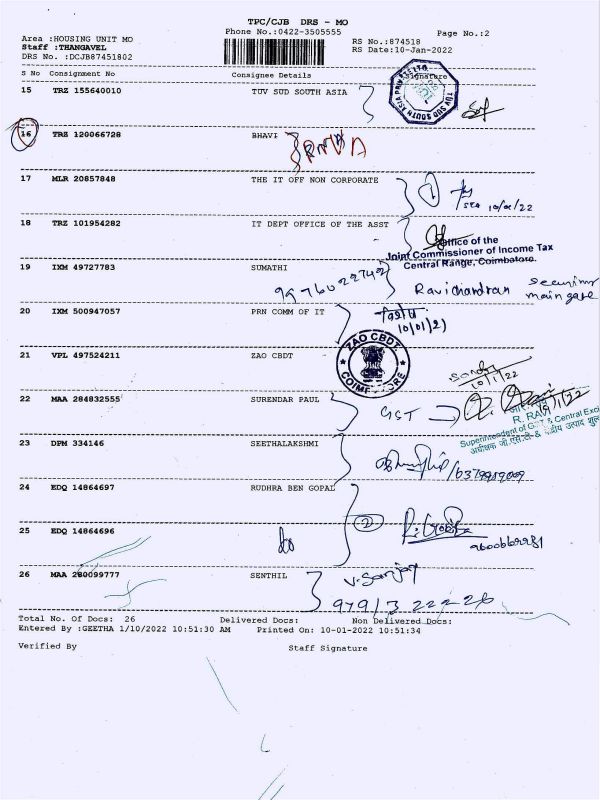 TPC/CJB DRS - MO
Phone No.:0422-3505555
Page No.:2
Area :HOUSING UNIT MO
Staff :THANGAVEL
DRS No. :DCJB87451802
RS No.:874518
RS Date:10-Jan-2022
S No Consignment No Consignee Details Signature
15 TRZ 155640010 TUV SUD SOUTH ASIA
TUV SUD SOUTH ASIA PRIVATE LTD
16 TRZ 120066728 BHAVI
17 MLR 20857848 THE IT OFF NON CORPORATE
18 TRZ 101954282 IT DEPT OFFICE OF THE ASST
Office of the
Joint Commissioner of Income Tax
Central Range, Coimbatore.
19 IXM 49727783 SUMATHI
9976022742
Ravichandran
main gate
20 IXM 500947057 PRN COMM OF IT
21 VPL 497524211 ZAO CBDT
ZAO CBDT.
COIMBATORE
10/1/22
22 MAA 284832555 SURENDAR PAUL
GST
R. RAVI
Superintendent of GST & Central Exci
23 DPM 334146 SEETHALAKSHMI
24 EDQ 14864697 RUDHRA BEN GOPAL
2
25 EDQ 14864696
do
26 MAA 280099777 SENTHIL
V. Sanjay
Total No. Of Docs: 26 Delivered Docs: Non Delivered Docs:
Entered By :GEETHA 1/10/2022 10:51:30 AM Printed On: 10-01-2022 10:51:34
Verified By Staff Signature